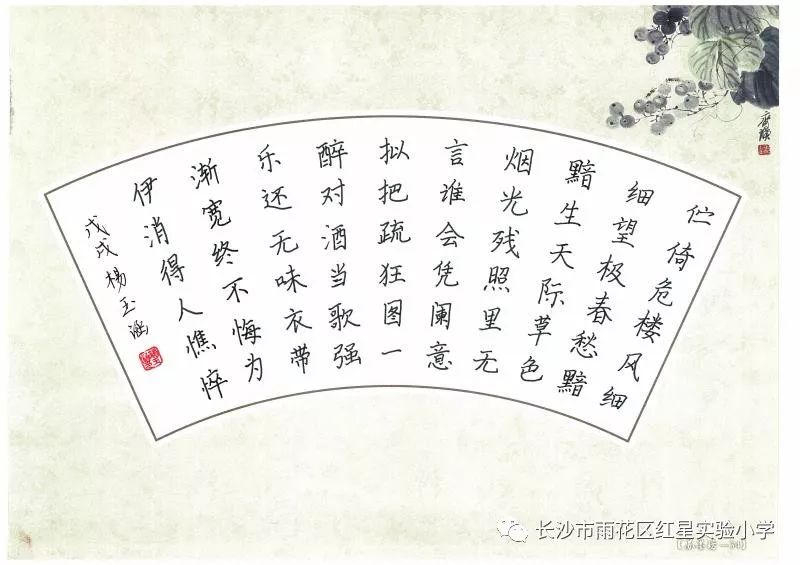 伫倚危楼风细
细望极春愁黯
黯生天际草色
烟光残照里无
言谁会凭阑意
拟把疏狂图一
醉对酒当歌强
乐还无味衣带
渐宽终不悔为
伊消得人憔悴
戊戌杨玉涵
长沙市雨花区红星实验小学